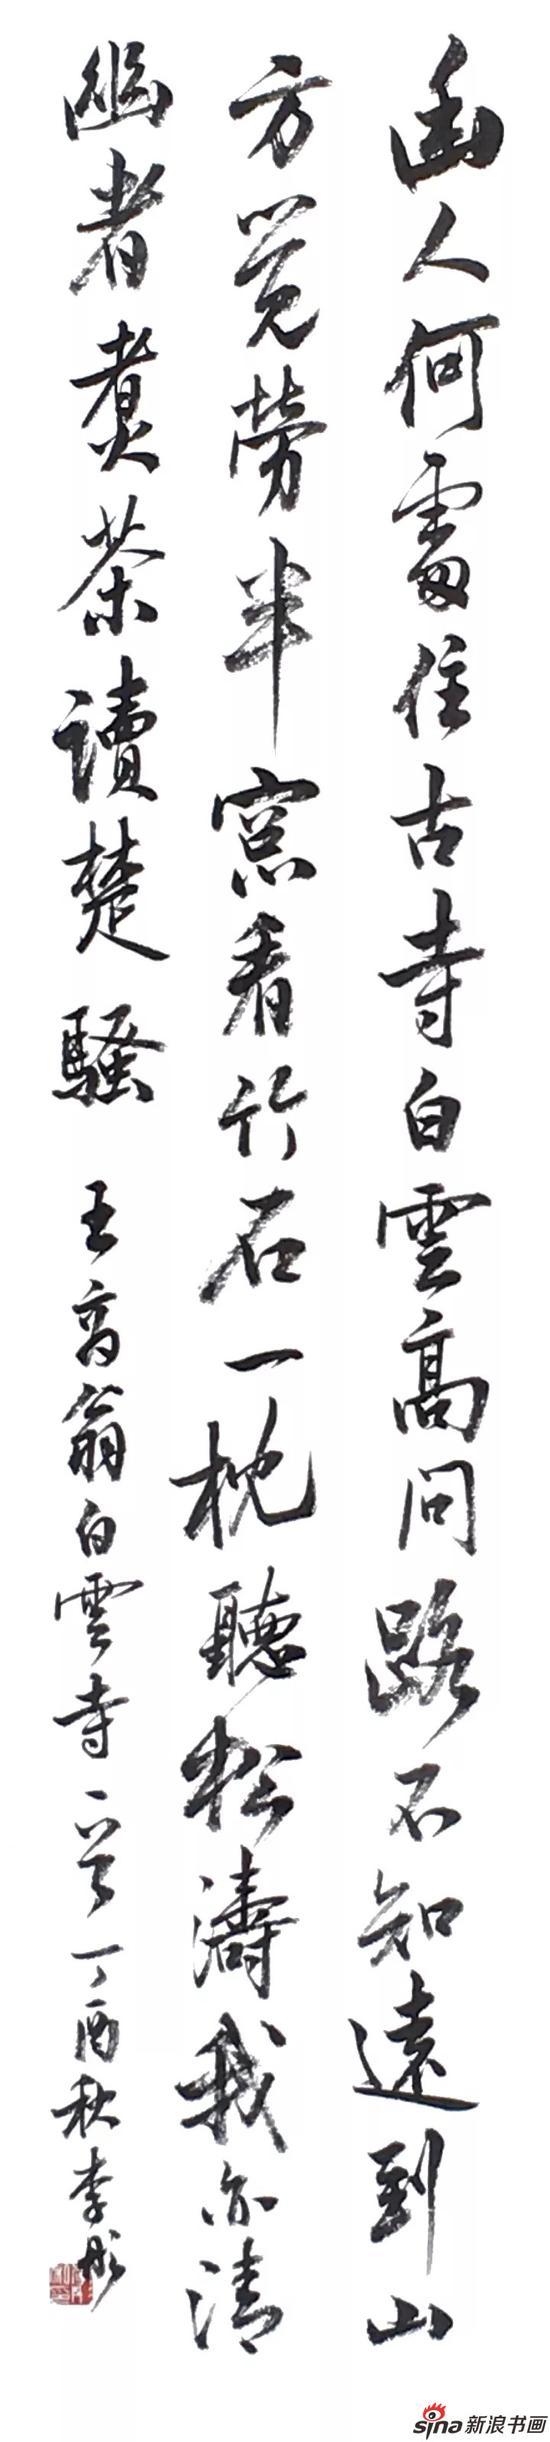 幽人何處住古寺白雲高問路不知遠到山
方覺勞半窓看竹石一枕聽松濤我亦清
幽者煑茶讀楚騷
王嵩翁白雲寺一首丁酉秋李彤
sina新浪书画